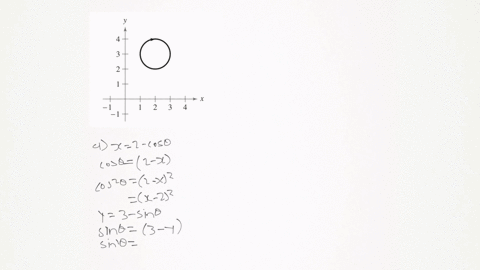 y
4
3
2
1
-1 1 2 3 4 x
-1
a) x=2-cosθ
cosθ=(2-x)
cos²θ=(2-x)²
=(x-2)²
y=3-sinθ
sinθ=(3-y)
sin²θ=